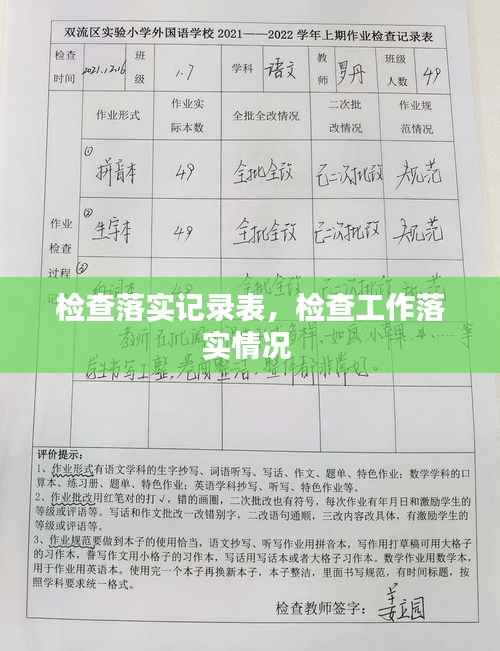 双流区实验小学外国语学校 2021——2022 学年上期作业检查记录表
检查时间 2021.12.16 班级 1.7 学科 语文 教师 罗丹 班级人数 49
作业形式 作业实际本数 全批全改情况 二次批改情况 作业规范情况
① 拼音本 49 全批全改 已二次批改 规范
② 生字本 49 全批全改 已二次批改 规范
作业检查过程
③
检查落实记录表，检查工作落
实情况
教师在批
评价提示：
1、作业形式有语文学科的生字抄写、词语听写、写话、作文、题单、特色作业；数学学科的口
算本、练习册、题单、特色作业；英语学科抄写、听写、特色作业等。
2、作业批改用红笔对的打√，错的画圈，二次批改也有符号，每次作业有年月日和激励学生的
等级或评语等。写话和作文批改一改错别字，二改语句通顺，三改内容改具体，有激励学生的
等级或评语等。
3、作业规范要做到本子的使用恰当，语文抄写、听写作业用拼音本，写作用打草稿可用大格子
的习作本，誊写作文用小格子的习作本，写话用写话本或者大格子习作本。数学作业用数学本，
用于作业用英语本。使用完一个本子再换新本子，本子整洁，里面书写规范，有时间标题，按
照学科要求统一格式。
检查教师签字：